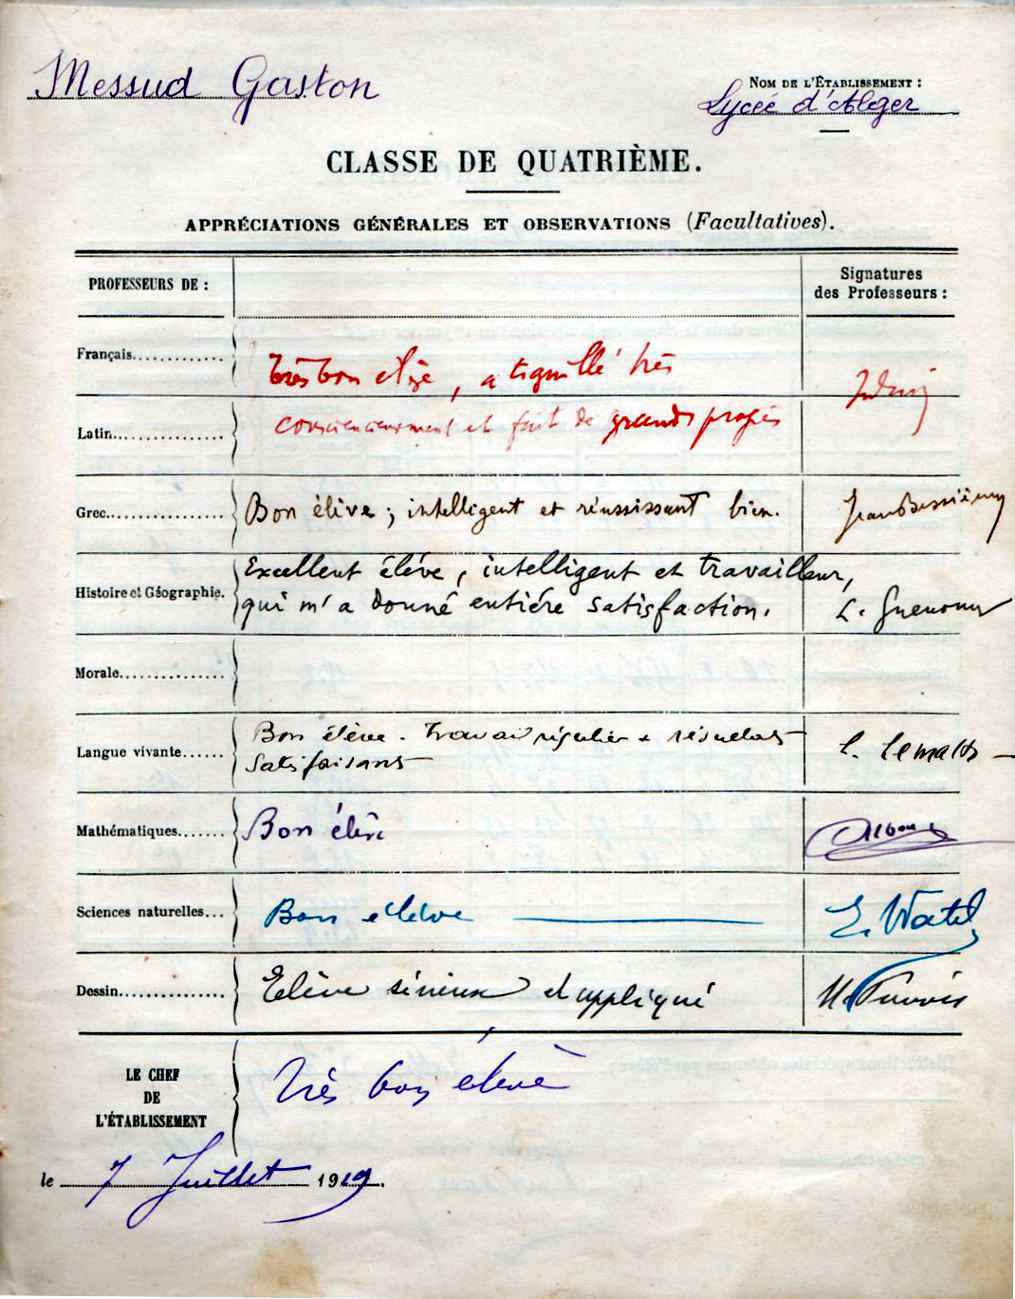 Messud Gaston
NOM DE L'ÉTABLISSEMENT :
Lycée d'Alger
CLASSE DE QUATRIÈME.
APPRÉCIATIONS GÉNÉRALES ET OBSERVATIONS (Facultatives).
PROFESSEURS DE :
Signatures
des Professeurs :
Français............
très bon élève, a travaillé très
Latin...............
consciencieusement et fait de grands progrès
Grec...............
Bon élève ; intelligent et réussissant bien.
Histoire et Géographie.
Excellent élève, intelligent et travailleur,
qui m'a donné entière satisfaction.
Morale..............
Langue vivante......
Bon élève. Travail régulier & résultats
satisfaisants
Mathématiques.......
Bon élève
Sciences naturelles...
Bon élève
E. Watel
Dessin...............
Elève sérieux et appliqué
LE CHEF
DE
L'ÉTABLISSEMENT
Très bon élève
le 7 Juillet 1919.